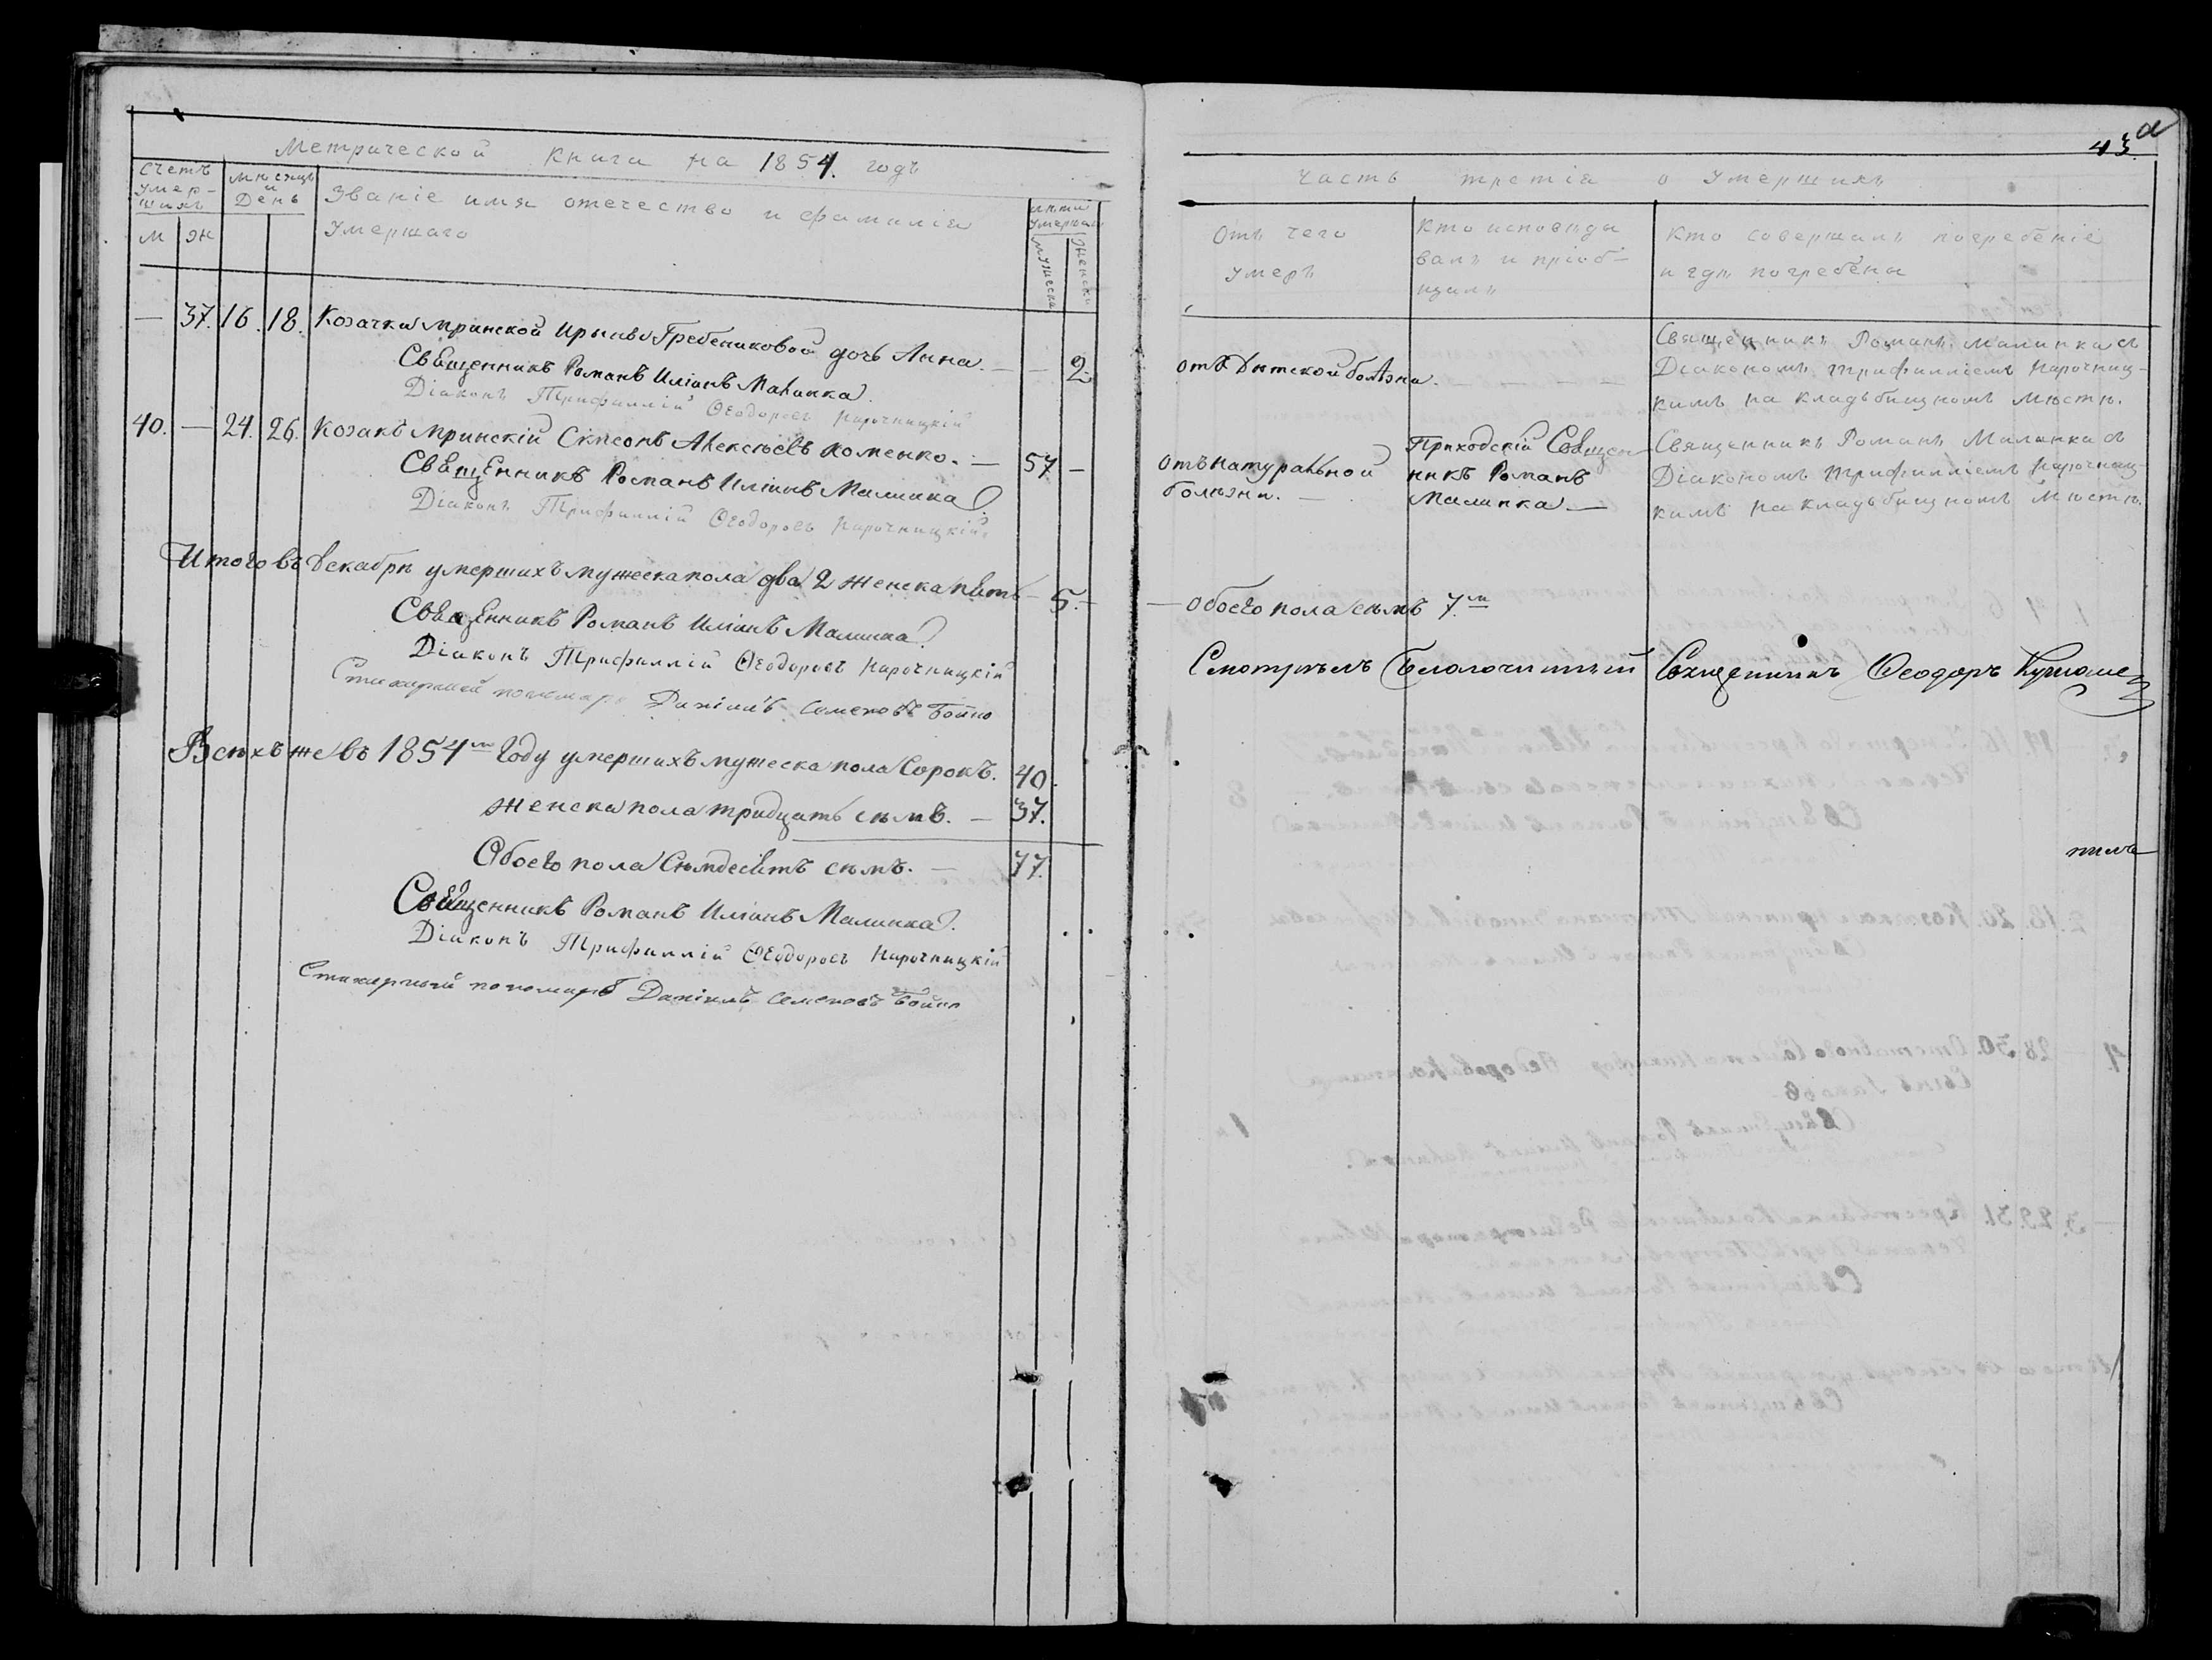 Метрической Книги на 1854. годъ
Счетъ умер-шихъ
Мѣсяцъ и День
Званіе имя отечество и фамилія
Умершаго
Лѣта умершаго
М Ж
Мужеска
Женска
— 37. 16. 18. Козачки Мринской Ирыны Гребениковой дочь Анна. — — 2.
Священникъ Романъ Иліинъ Малинка.
Діаконъ Трифиллій Ѳеодоровъ Нарочницкій
40. — 24. 26. Козакъ Мринскій Алексѣевъ Хоменко. — 57 —
Священникъ Романъ Иліинъ Малинка
Діаконъ Трифиллій Ѳеодоровъ Нарочницкій.
Итого въ Декабрѣ умершихъ мужеска пола два 2 женска пять — 5. —
Священникъ Романъ Иліинъ Малинка
Діаконъ Трифиллій Ѳеодоровъ Нарочницкій
Стихарный пономарь Даніилъ Семеновъ Бойко
Всѣхъ же въ 1854м Году умершихъ мужеска пола Сорокъ. 40.
женска пола тридцать сѣмъ. — 37.
Обоего пола Сѣмдесятъ сѣмъ. — 77.
Священникъ Романъ Иліинъ Малинка.
Діаконъ Трифиллій Ѳеодоровъ Нарочницкій
Стихарный пономарь Даніилъ Семеновъ Бойко
43.
Часть третія о Умершихъ
Отъ чего
умеръ
Кто исповѣды
валъ и пріоб-
щалъ
Кто совершалъ погребеніе
и гдѣ погребены
отъ Дѣтской болѣзни.
Священникъ Романъ Малинка съ
Діакономъ Трифилліемъ Нарочниц-
кимъ на кладьбищномъ Мѣстѣ.
отъ натуральной
болѣзни. —
Приходскій Священ
никъ Романъ
Малинка —
Священникъ Романъ Малинка съ
Діакономъ Трифилліемъ Нарочниц-
кимъ на кладьбищномъ Мѣстѣ.
— обоего пола сѣмъ 7.м
Смотрѣлъ Благочинный Священникъ Ѳеодоръ